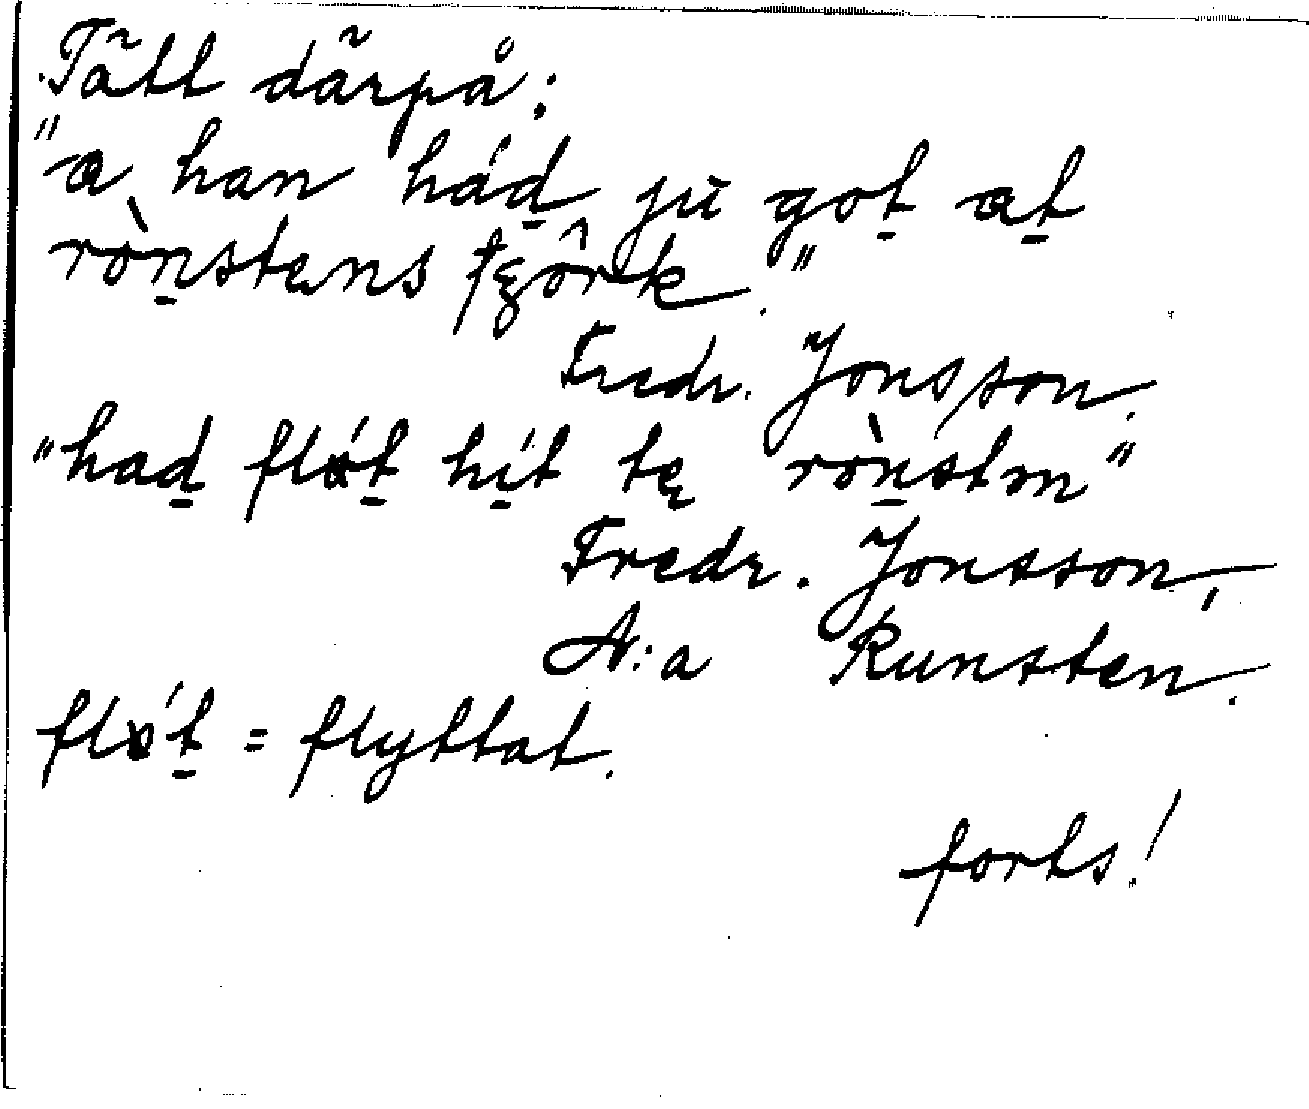 Tätt därpå:
"a han hád̲ jū got̲ at̲
ròn̲stens fȩôrk."
Fredr. Jonsson.
"had̲ flót̲ hi̲t tę ròn̲stn"
Fredr. Jonsson,
N:a Runsten.
flót̲ = flyttat.
forts!